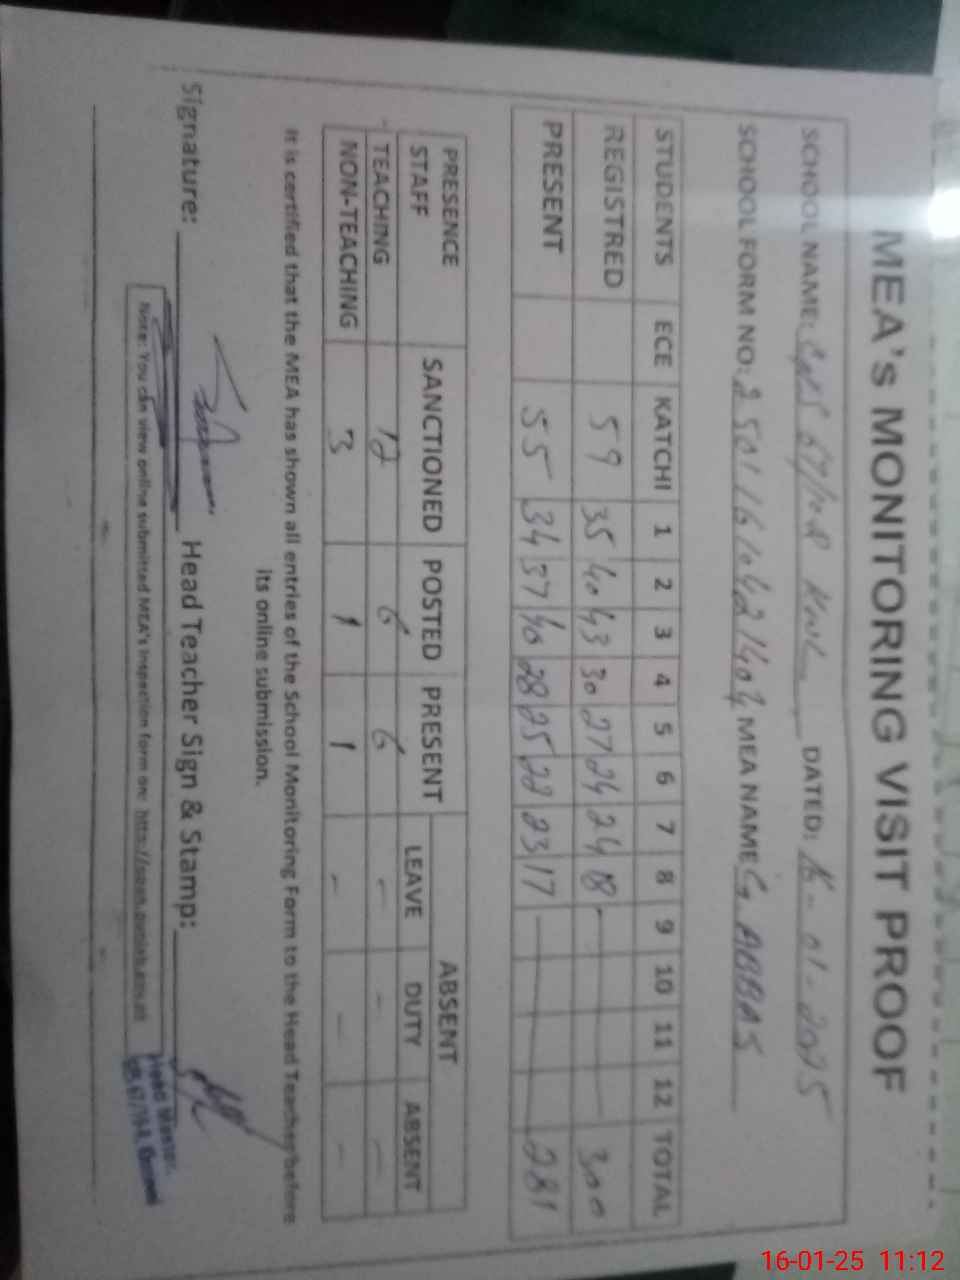 MEA's MONITORING VISIT PROOF
SCHOOL NAME: DATED: 16-01-2025
SCHOOL FORM NO: MEA NAME G ABBAS
STUDENTS ECE KATCHI 1 2 3 4 5 6 7 8 9 10 11 12 TOTAL
REGISTRED 59 35 40 43 30 27 24 24 18 - 300
PRESENT 55 34 37 40 28 25 22 23 17 - 281
PRESENCE STAFF SANCTIONED POSTED PRESENT ABSENT
LEAVE DUTY ABSENT
TEACHING 12 6 6 - - -
NON-TEACHING 3 1 1 - - -
It is certified that the MEA has shown all entries of the School Monitoring Form to the Head Teacher before
its online submission.
Signature: Head Teacher Sign & Stamp:
Note: You can view online submitted MEA's inspection form on:
Head Master
16-01-25 11:12